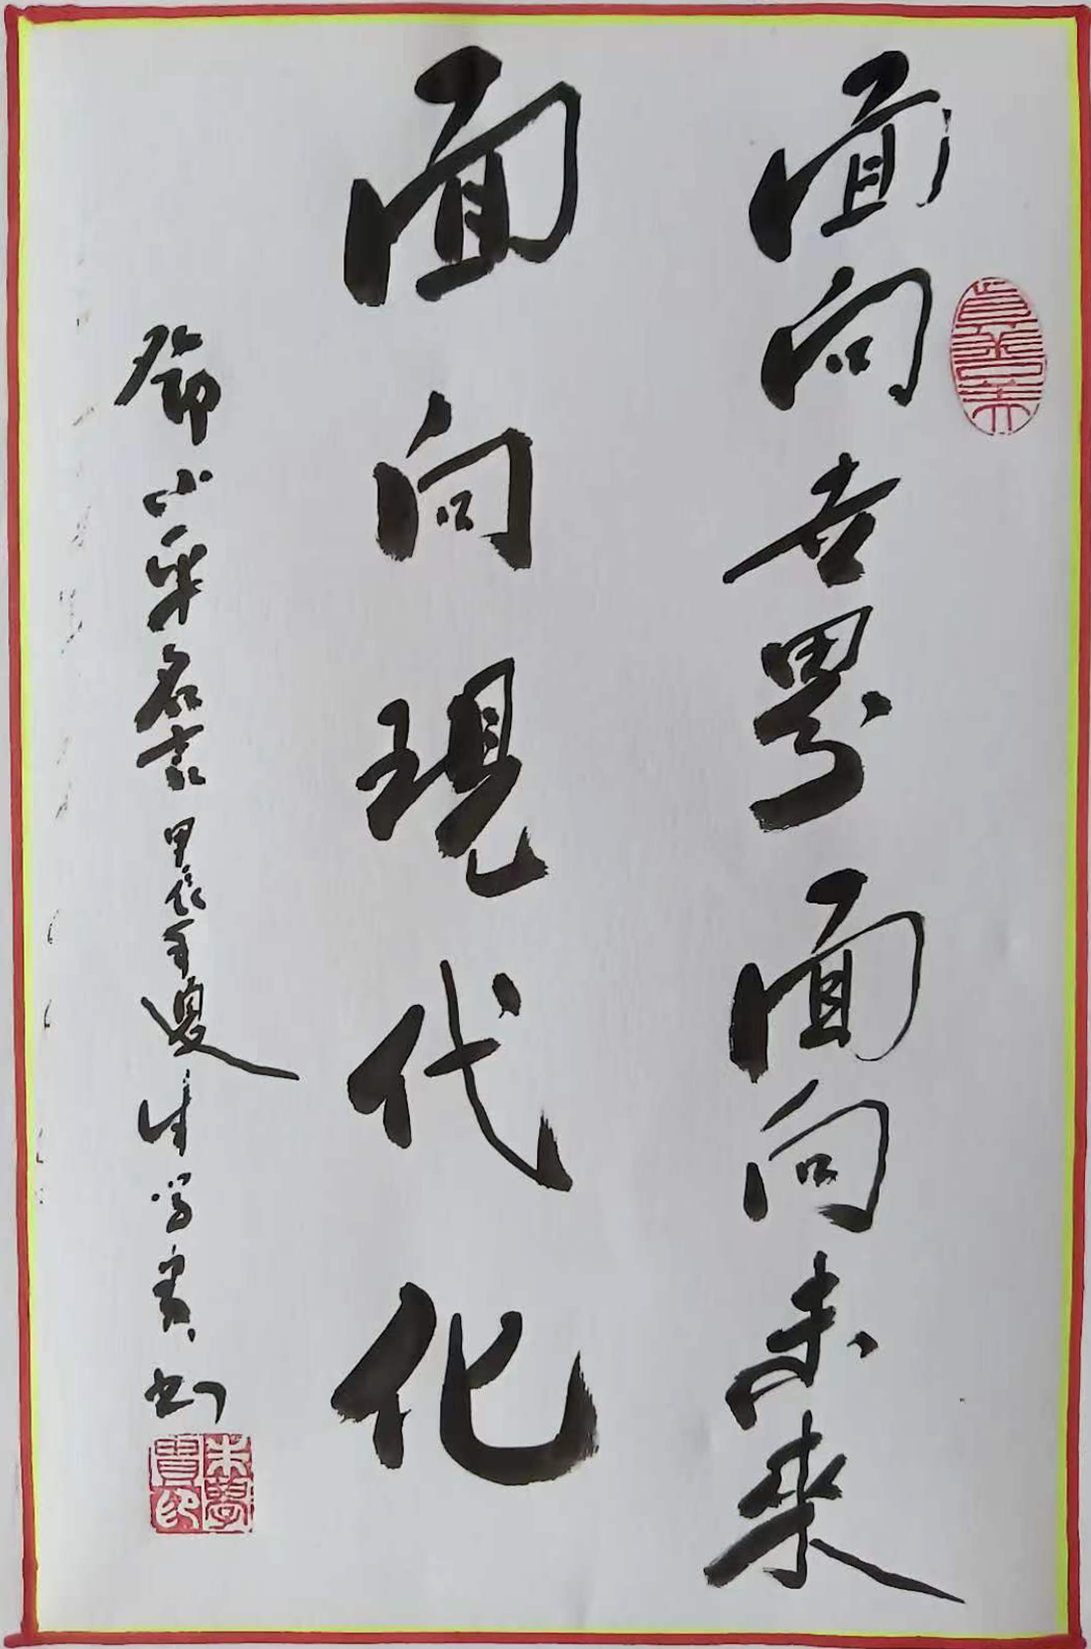 面向世界面向未来
面向现代化
邓小平名言甲辰年夏朱学贵书
朱學貴印